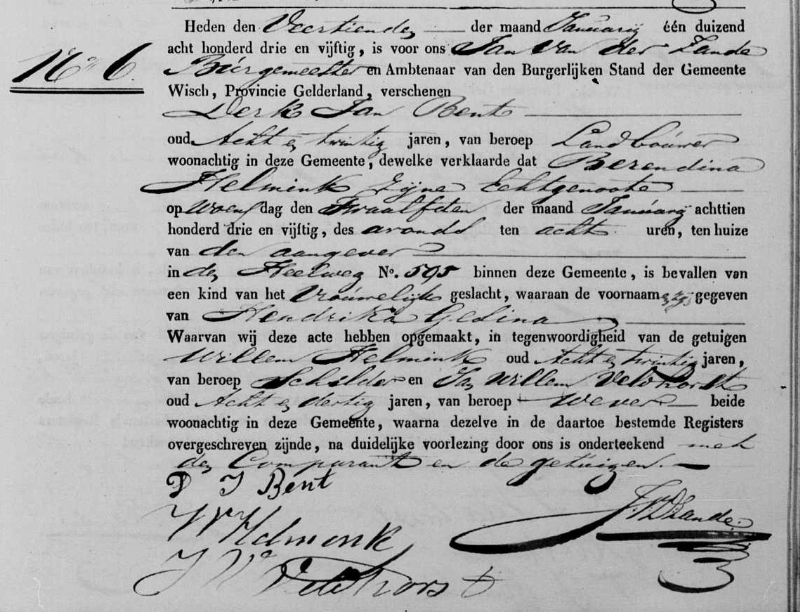 Heden den Veertienden der maand Januarij één duizend
acht honderd drie en vijftig, is voor ons Jan van der Zande
No 6. Burgemeester en Ambtenaar van den Burgerlijken Stand der Gemeente
Wisch, Provincie Gelderland, verschenen
Derk Jan Bent
oud Acht en twintig jaren, van beroep Landbouwer
woonachtig in deze Gemeente, dewelke verklaarde dat Berendina
Helmink Zijne Echtgenoote
op Woensdag den Twaalfden der maand Januarij achttien
honderd drie en vijftig, des avonds ten acht uren, ten huize
van den aangever
in den Heelweg No. 595 binnen deze Gemeente, is bevallen van
een kind van het Vrouwelijk geslacht, waaraan de voornaam zijn gegeven
van Hendrika Gesina
Waarvan wij deze acte hebben opgemaakt, in tegenwoordigheid van de getuigen
Willem Helmink oud Acht en twintig jaren,
van beroep Schilder en Jan Willem Velthorst
oud Acht en dertig jaren, van beroep Wever beide
woonachtig in deze Gemeente, waarna dezelve in de daartoe bestemde Registers
overgeschreven zijnde, na duidelijke voorlezing door ons is onderteekend met
den Comparant en de getuigen.
D J Bent
W Helmenk
JVDZande
J W Velthorst